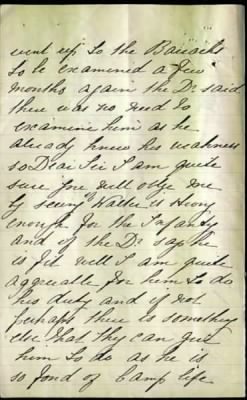 went up to the Barracks
to be examined a few
months again the Dr said
there was no need to
examine him as he
already knew his weakness
so Dear Sir I am quite
sure you will oblige me
by seeing if Walter is strong
enough for the Infantry
and if the Dr say he
is fit well I am quite
aggreable for him to do
his duty and if not
perhaps there is something
else that they can give
him to do as he is
so fond of Camp life